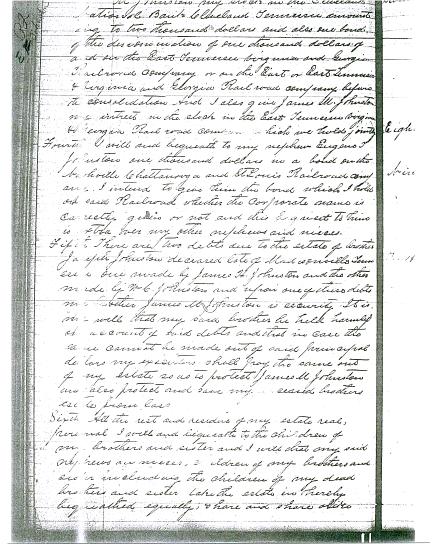 Johnston my stock in the Cleveland
National Bank Cleveland Tennessee amount
ing to two thousand dollars and also one bond
of the denomination of one thousand dollars of
and on the East Tennessee Virginia and Georgia
Railroad company or on the East or East Tennessee
& Virginia and Georgia Railroad company before
the consolidation. And I also give James M. Johnston
my interest in the stock in the East Tennessee Virginia
& Georgia Railroad com which we hold jointly
Fourth I will and bequeath to my nephew Eugene J
Johnston one thousand dollars in a bond on the
Nashville Chattanooga and St Louis Railroad comp
any. I intend to give him the bond which I hold
on said Railroad whether the corporate name is
correctly given or not and this bequest to him
is to be over my other nephews and nieces.
Fifth There are two debts due to the estate of brother
Joseph Johnston deceased late of Madisonville Tenn
see one made by James H Johnston and the other
made by W C Johnston and upon one of these debts
my brother James M. Johnston is security. It is
my will that my said brother be held harmless
on account of said debts and that in case the
same cannot be made out of said principal
debtors my executors shall pay the same out
of my estate so as to protect James M Johnston
and also protect and save my deceased brothers
estate from loss
Sixth All the rest and residue of my estate real,
personal I will and bequeath to the children of
my brothers and sister and I will that my said
nephews and nieces, children of my brothers and
sister including the children of my dead
brothers and sister take the estate hereby
bequeathed equally, share and share alike
Eigh